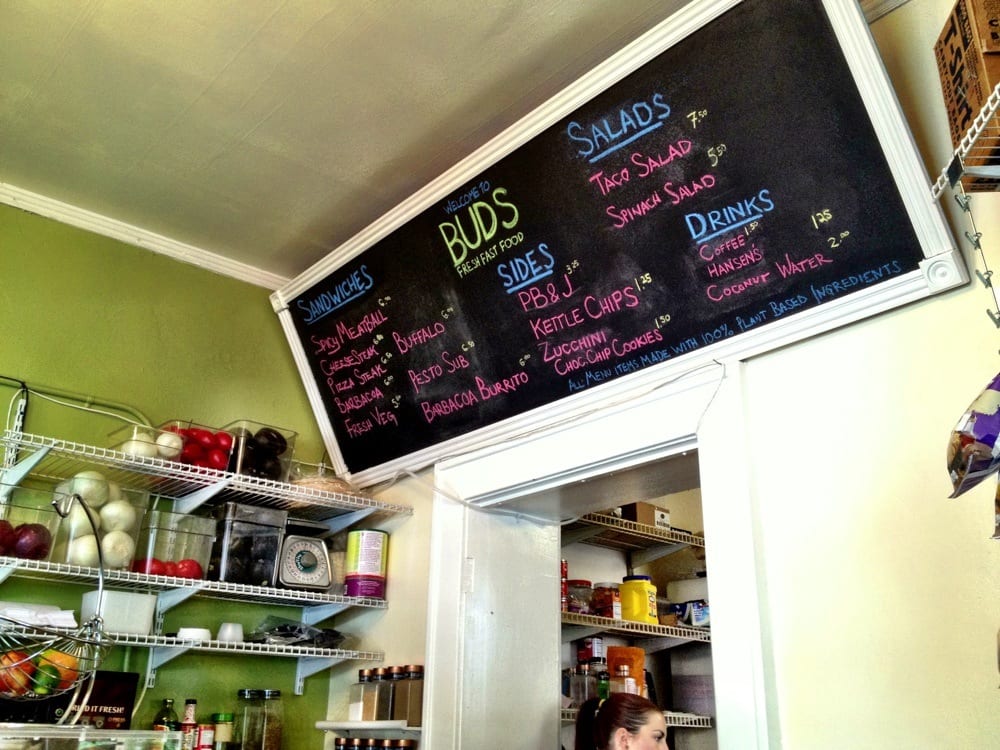 WELCOME TO
BUDS
FRESH FAST FOOD
SANDWICHES
SPICY MEATBALL
CHEESESTEAK
PIZZA STEAK
BARBACOA
FRESH VEG
BUFFALO
PESTO SUB
BARBACOA BURRITO 6.00
SIDES
PB&J 3.25
KETTLE CHIPS 1.25
ZUCCHINI
CHOC. CHIP COOKIES 1.50
SALADS
TACO SALAD 7.50
SPINACH SALAD 5.50
DRINKS
COFFEE 1.50
HANSEN'S 1.25
COCONUT WATER 2.00
ALL MENU ITEMS MADE WITH 100% PLANT BASED INGREDIENTS
T-Shirt
IT FRESH!